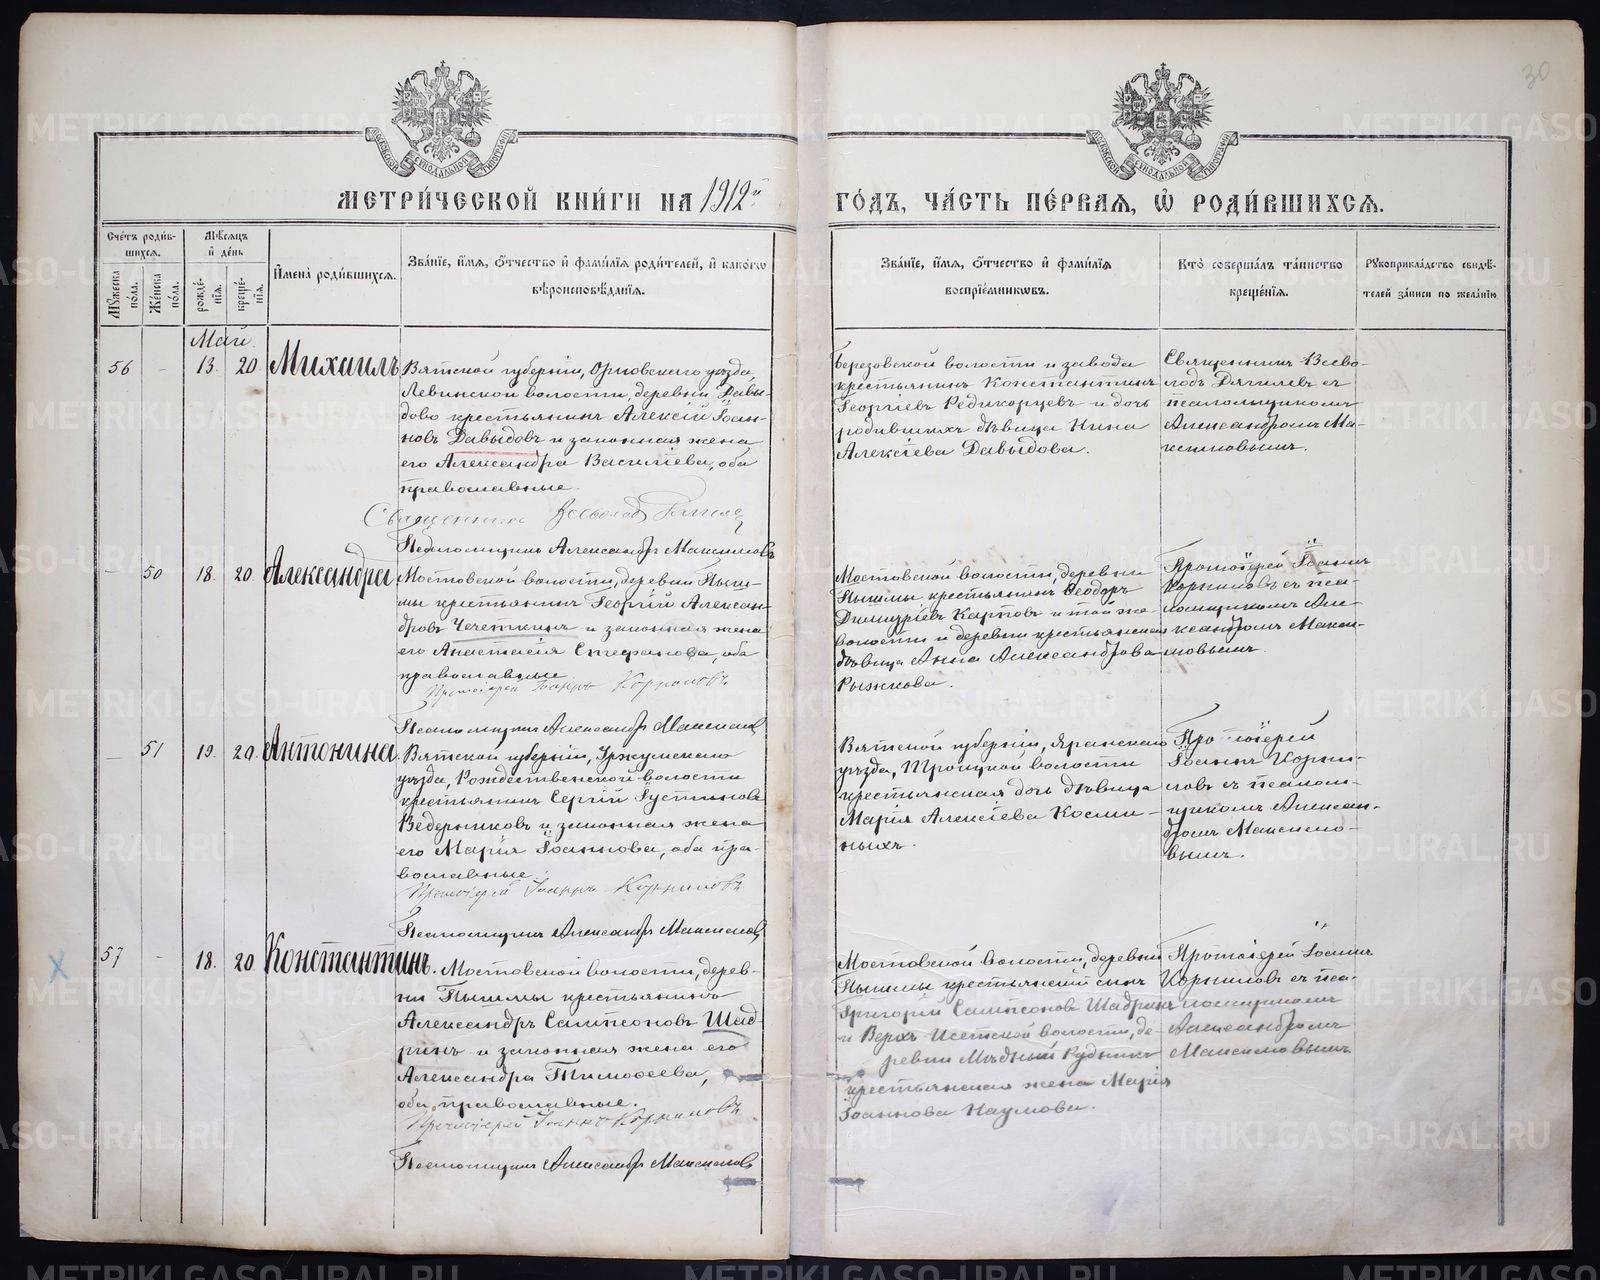 30
МЕТРИ́ЧЕСКОЙ КНИ́ГИ НА 1912й
ГО́ДЪ, ЧА́СТЬ ПЕ́РВАЯ, Ѡ҆ РОДИ́ВШИХСЯ.
Сче́тъ роди́в-
шихся.
Мѣсяцъ
и де́нь
Муже́ска по́ла.
Же́нска по́ла.
рожде́-
нія.
креще́-
нія.
Имена̀ роди́вшихся.
Зва́ніе, и́мя, о́тчество и фами́лія роди́телей, и како́гѡ
вѣроисповѣ́данія.
Зва́ніе, и́мя, о́тчество и фами́лія
воспріе́мниковъ.
Кто̀ соверша́лъ та́инство
креще́нія.
Рукоприкла́дство свидѣ́-
телей за́писи по жела́нію
Май
56 - 13. 20 Михаилъ
Вятской губерніи, Орловскаго уѣзда,
Левинской волости, деревни Давы-
дово крестьянинъ Алексій Іоан-
новъ Давыдовъ и законная жена
его Александра Василіева, оба
православные.
Священникъ Всеволод
Псаломщикъ Александръ Максимовъ
Березовской волости и завода
крестьянинъ Константинъ
Георгіевъ Редикорцевъ и дочь
родившихъ дѣвица Нина
Алексіева Давыдова.
Священникъ Всево-
лодъ Дягилевъ съ
псаломщикомъ
Александромъ Ма-
ксимовымъ.
- 50 18. 20. Александра
Мостовской волости, деревни Пыш-
мы крестьянинъ Георгій Алексан-
дровъ Чечеткинъ и законная жена
его Анастасія Стефанова, оба
православные
Протоіерей Іоаннъ Корниловъ
Псаломщикъ Александръ Максимовъ
Мостовской волости, деревни
Пышмы крестьянинъ Ѳеодоръ
Димитріевъ Карповъ и той же
волости и деревни крестьянская
дѣвица Анна Александрова
Рыжкова.
Протоіерей Іоаннъ
Корниловъ съ пса-
ломщикомъ Але-
ксандромъ Макси-
мовымъ.
- 51 19. 20. Антонина
Вятской губерніи, Уржумскаго
уѣзда, Рождественской волости
крестьянинъ Сергій Іустиновъ
Ведерниковъ и законная жена
его Марія Іоаннова, оба пра-
вославные.
Протоіерей Іоаннъ Корниловъ
Псаломщикъ Александръ Максимовъ
Вятской губерніи, Яранскаго
уѣзда, Троицкой волости
крестьянская дочь дѣвица
Марія Алексіева Косми-
ныхъ.
Протоіерей
Іоаннъ Корни-
ловъ съ псалом-
щикомъ Алексан-
дромъ Максимо-
вымъ.
57 - 18. 20. Константинъ.
Мостовской волости, дерев-
ни Пышмы крестьянинъ
Александръ Сампсоновъ Шад-
ринъ и законная жена его
Александра Тимоѳеева,
оба православные.
Протоіерей Іоаннъ Корниловъ
Псаломщикъ Александръ Максимовъ
Мостовской волости, деревни
Пышмы крестьянскій сынъ
Григорій Сампсоновъ Шадринъ
и Верхъ-Исетской волости, де-
ревни Мѣдный Рудникъ
крестьянская жена Марія
Іоаннова Наумова.
Протоіерей Іоаннъ
Корниловъ съ пса-
ломщикомъ
Александромъ
Максимовымъ.
METRIKI.GASO-URAL.RU